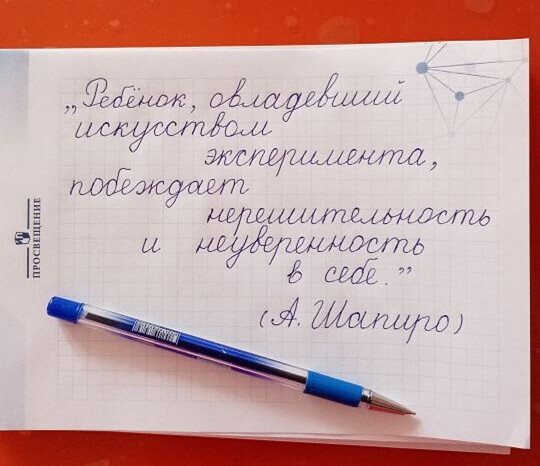 „Ребёнок, овладевший
искусством
эксперимента,
побеждает
нерешительность
и неуверенность
в себе.”
(А. Шапиро)
ПРОСВЕЩЕНИЕ